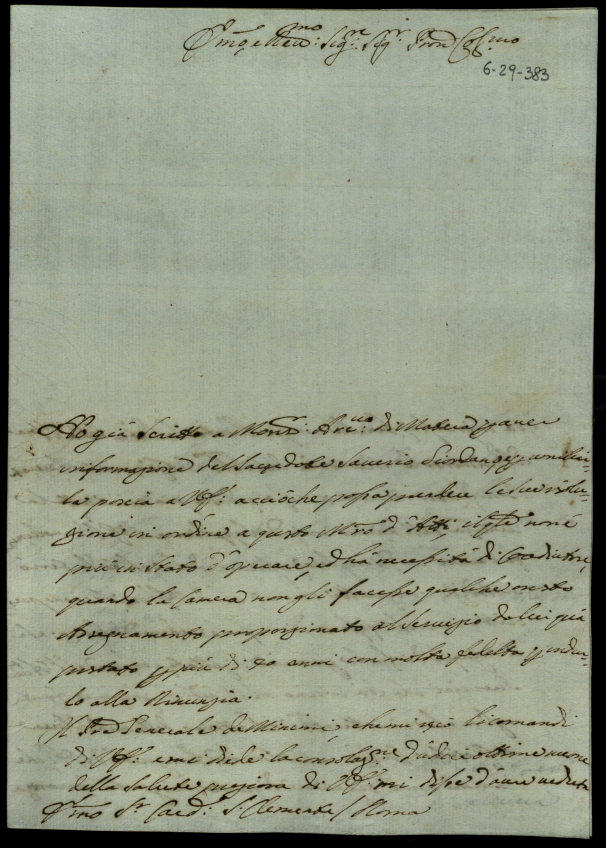 Em̃o e Rev.mo Sig.re Sig.r P̃ron Col.mo
6-29-383
Hò già scritto a Mons.r Arc.vo di Matera p aver
informazione del Sacerdote Saverio Giordan
la poscia a V.E. acciòche possa prendere le sue risolu-
zioni in ordine a questo Mro d'Atti, il qle non è
più in stato d'operare, ed hà necessità di Coadiutore,
quando la Camera non gli facesse qualche onesto
Assegnamento proporzionato al servizio da lui già
prestato p più di 20 anni con molta fedeltà p indur-
lo alla Rinunzia.
Il Pre Generale de Minimi, che mi recò li comandi
di V.E. e mi diede la consolaz.ne d'udire ottime nuove
della salute di V.E. mi disse d'aver veduta
Em̃o Sr Card. S. Clemente / Roma